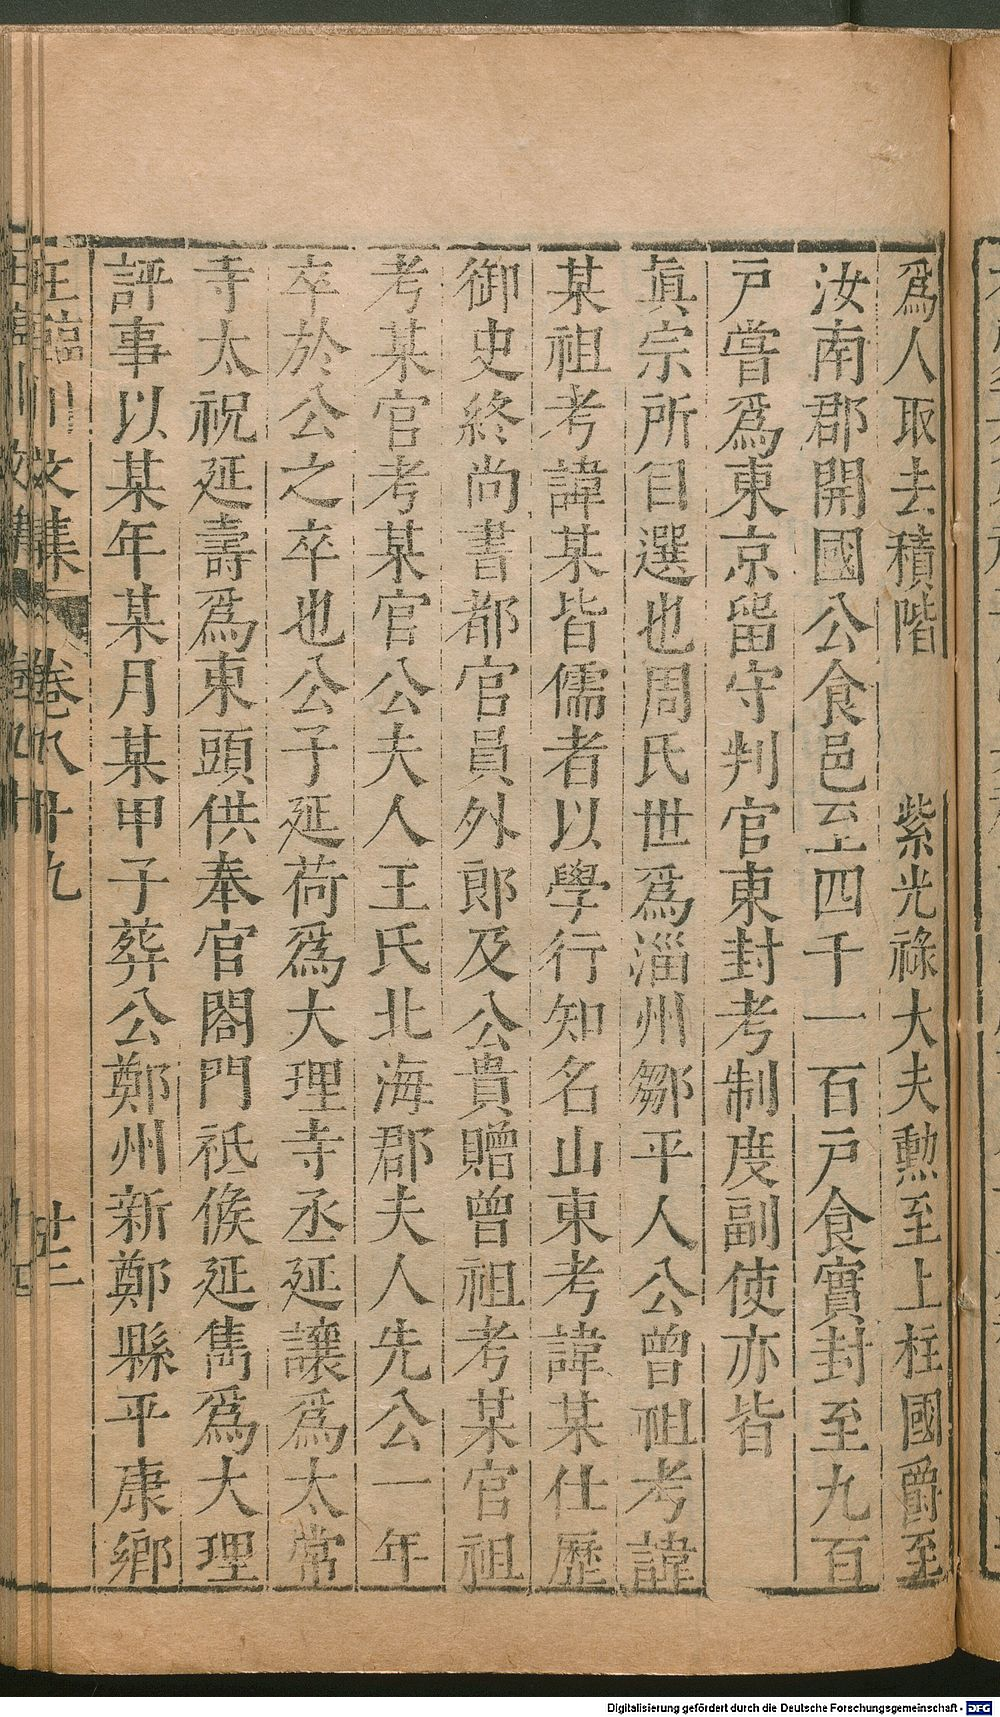 爲人取去積階　　紫光祿大夫勲至上柱國爵至
汝南郡開國公食邑至四千一百戸食實封至九百
戸嘗爲東京留守判官東封考制度副使亦皆
眞宗所自選也周氏世爲淄州鄒平人公曾祖考諱
某祖考諱某皆儒者以學行知名山東考諱某仕歷
御史終尚書都官員外郎及公貴贈曾祖考某官祖
考某官考某官公夫人王氏北海郡夫人先公一年
卒於公之卒也公子延荷爲大理寺丞延讓爲太常
寺太祝延壽爲東頭供奉官閤門祗候延雋爲大理
評事以某年某月某甲子葬公鄭州新鄭縣平康鄉
王臨川文集　卷八十九　廿二
Digitalisierung gefördert durch die Deutsche Forschungsgemeinschaft - DFG